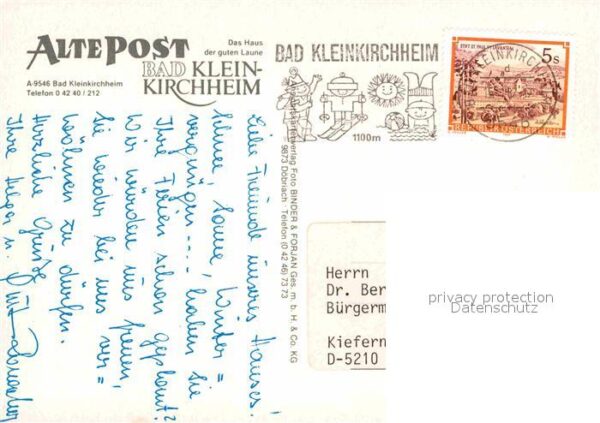 ALTE POST
Das Haus
der guten Laune
BAD KLEIN-
KIRCHHEIM
A-9546 Bad Kleinkirchheim
Telefon 0 42 40 / 212
BAD KLEINKIRCHHEIM
1100m
KLEINKIRCH
STIFT ST. PAUL IM LAVANTTAL
5s
REPUBLIK ÖSTERREICH
Liebe Freunde unseres Hauses!
Schnee, Sonne, Winter=
vergnügen... haben Sie
Ihre Ferien schon geplant?
Wir würden uns freuen,
Sie wieder bei uns ver=
wöhnen zu dürfen.
Herzliche Grüße
Ihre
Verlag Foto BINDER & FORJAN Ges. m. b. H. & Co. KG
9873 Döbriach · Telefon (0 42 46) 73 73
Herrn
Dr. Ber
Bürgerm
Kiefern
D-5210
privacy protection
Datenschutz